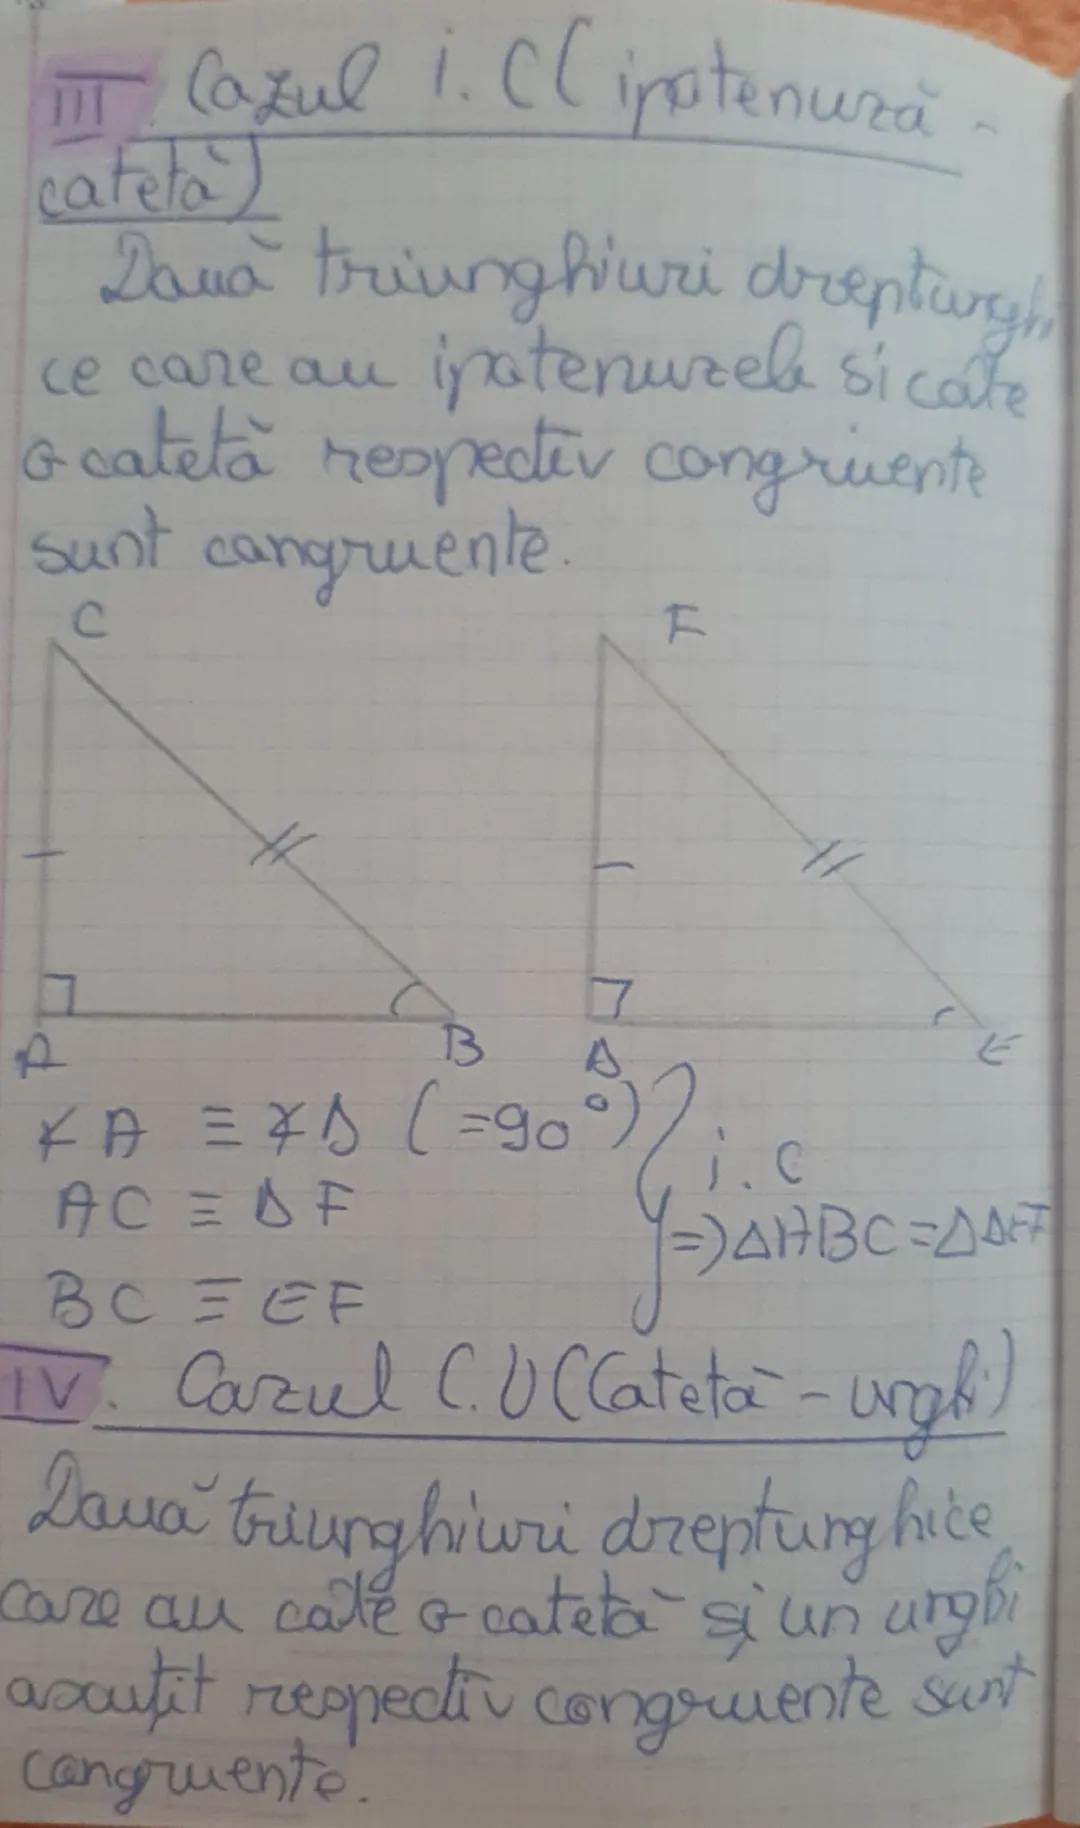 III. Cazul i.C(ipotenuză -
catetă)
Două triunghiuri dreptungh
ce care au ipotenuzele si câte
o catetă respectiv congruente
sunt congruente.
C F
A B D E
∢A ≡ ∢D (=90°)
i.C
AC ≡ DF
=> ΔABC = ΔDEF
BC ≡ EF
IV. Cazul C.U(Catetă - unghi)
Două triunghiuri dreptunghice
care au câte o catetă și un unghi
ascuțit respectiv congruente sunt
congruente.